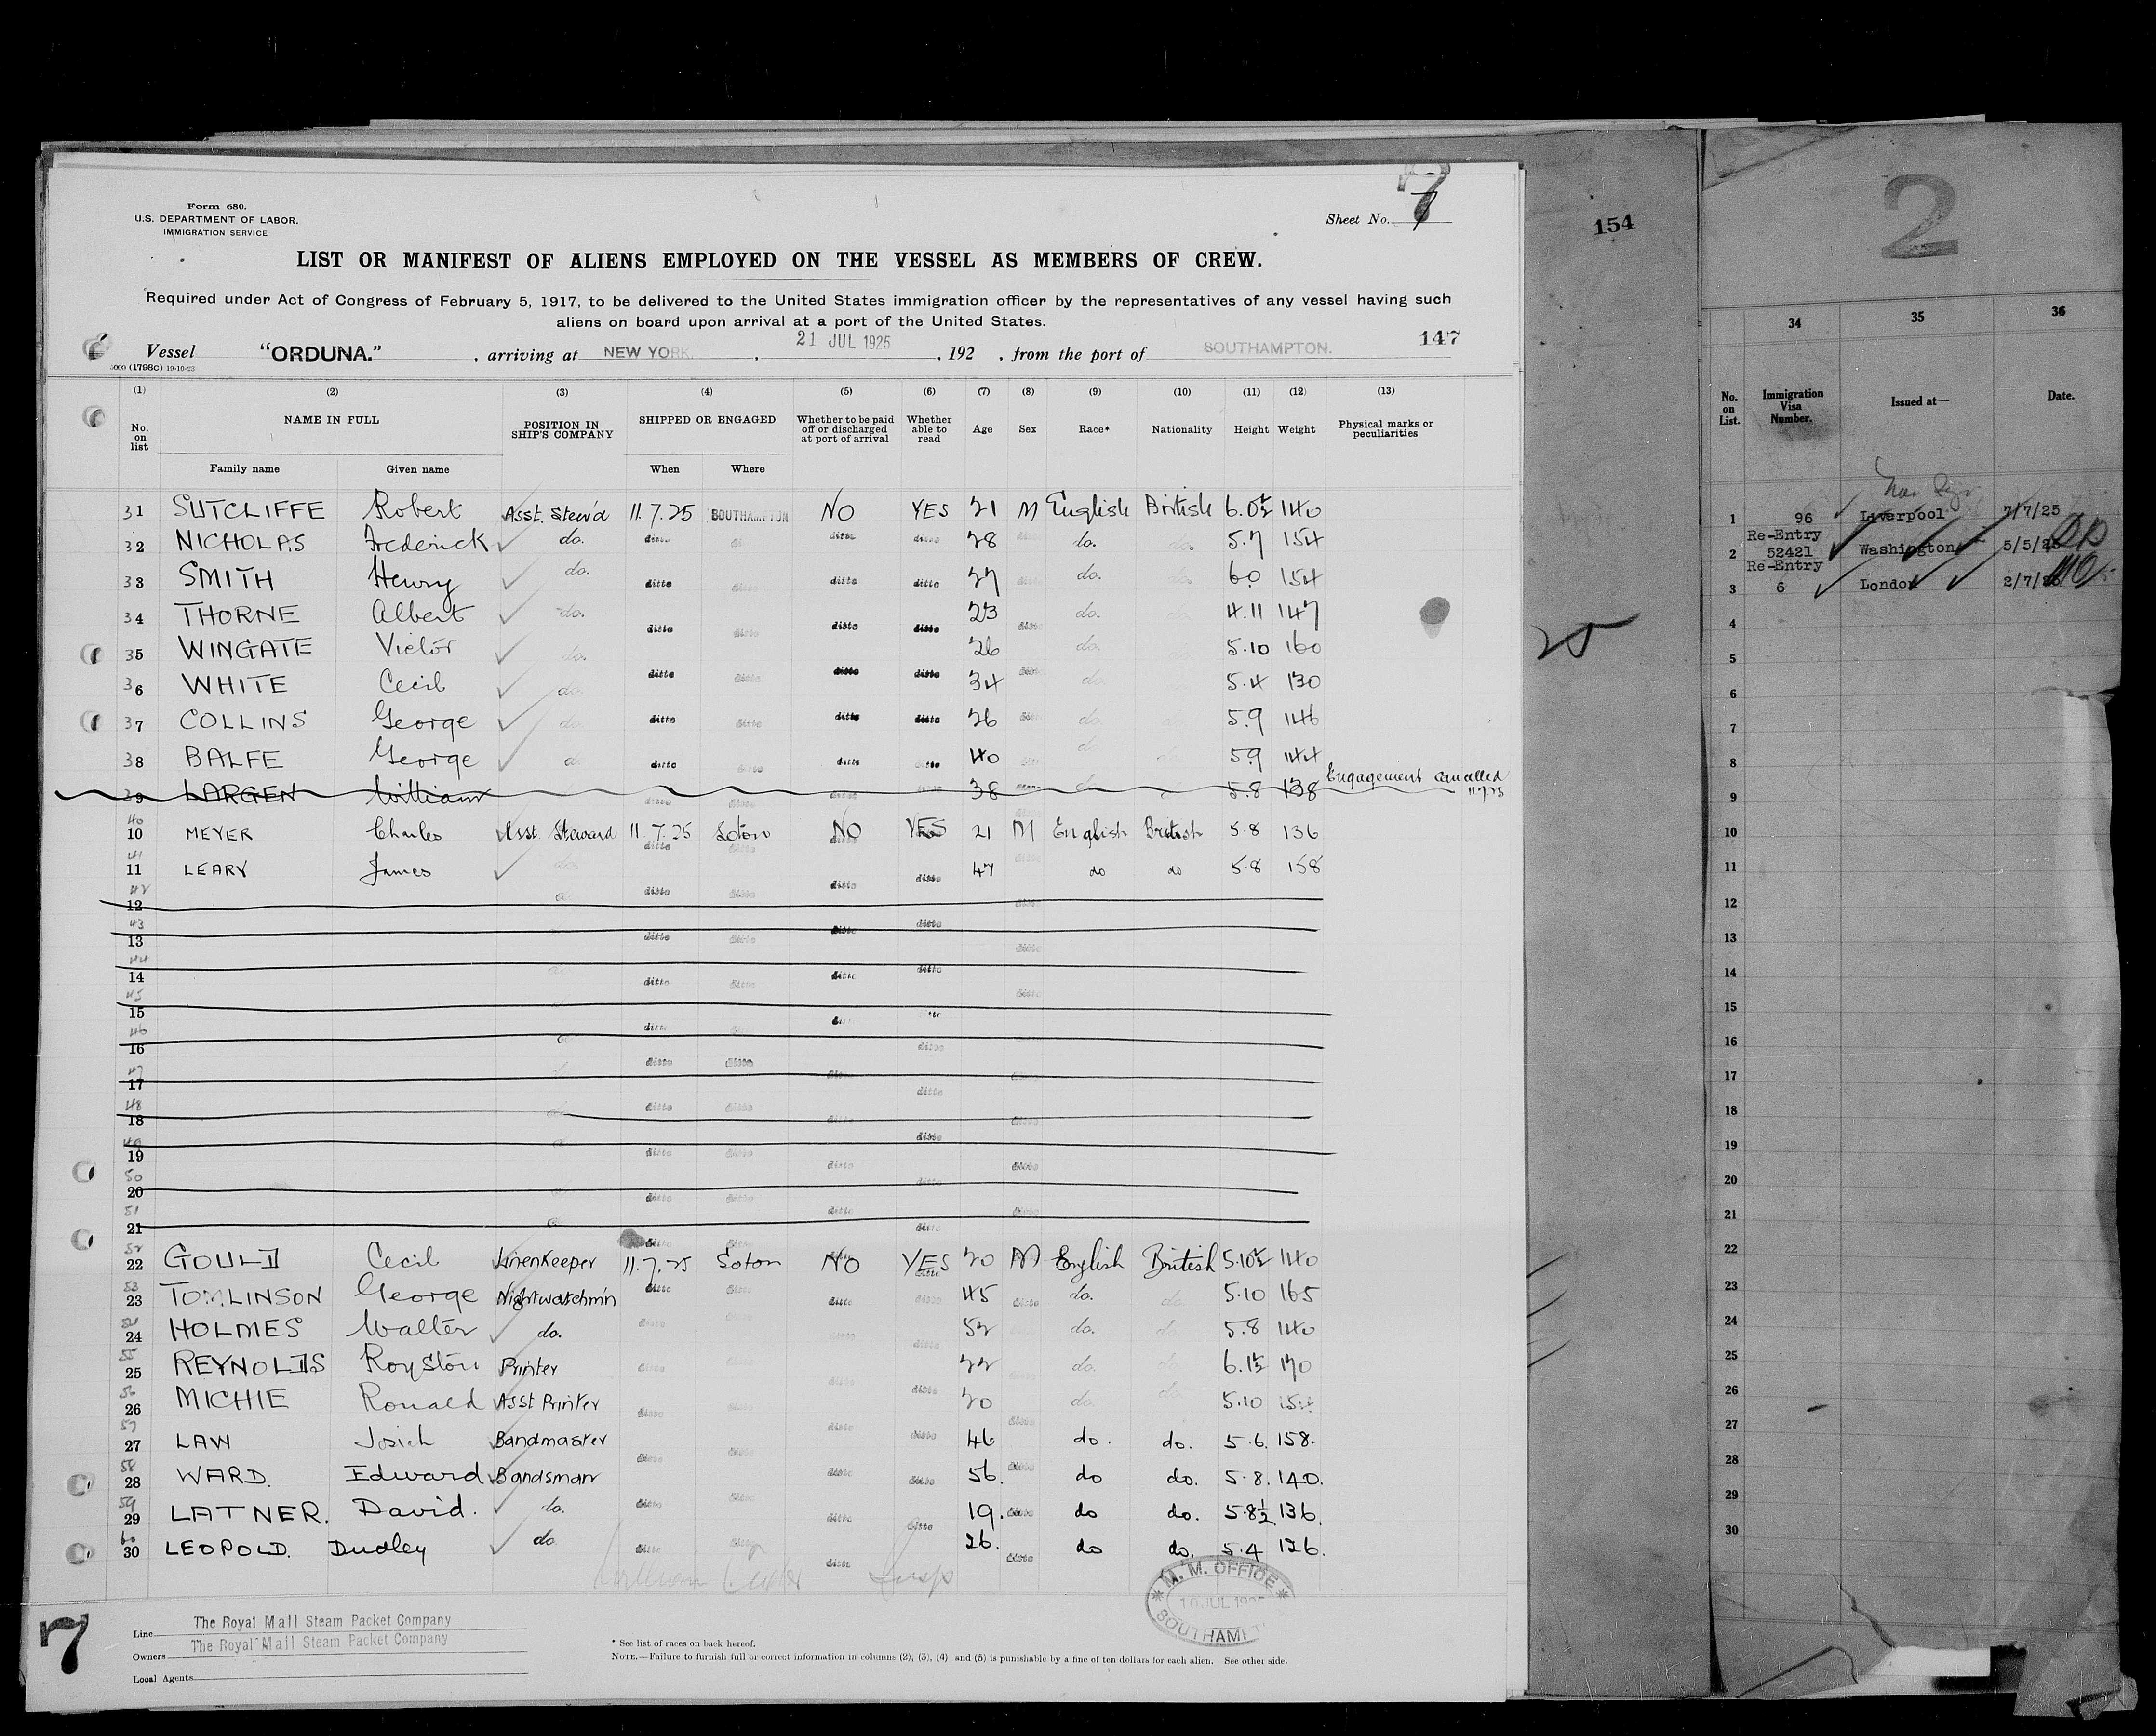 Form 680.
U.S. DEPARTMENT OF LABOR.
IMMIGRATION SERVICE
Sheet No. 7
LIST OR MANIFEST OF ALIENS EMPLOYED ON THE VESSEL AS MEMBERS OF CREW.
Required under Act of Congress of February 5, 1917, to be delivered to the United States immigration officer by the representatives of any vessel having such
aliens on board upon arrival at a port of the United States.
Vessel "ORDUNA." , arriving at NEW YORK. , 21 JUL 1925 , 192 , from the port of SOUTHAMPTON. 147
5000 (1798C) 19-10-23
(1) (2) (3) (4) (5) (6) (7) (8) (9) (10) (11) (12) (13)
No. on list NAME IN FULL Family name Given name POSITION IN SHIP'S COMPANY SHIPPED OR ENGAGED When Where Whether to be paid off or discharged at port of arrival Whether able to read Age Sex Race* Nationality Height Weight Physical marks or peculiarities
31 SUTCLIFFE Robert Asst. Stew'd 11.7.25 SOUTHAMPTON NO YES 21 M English British 6.0½ 140
32 NICHOLAS Frederick do. ditto ditto ditto 28 do. do. 5.7 154
33 SMITH Henry do. ditto ditto ditto ditto 27 do. do. 6.0 154
34 THORNE Albert do. ditto ditto ditto ditto 23 ditto do. 4.11 147
35 WINGATE Victor do. 26 do. 5.10 160
36 WHITE Cecil do. ditto ditto ditto ditto 34 ditto do. 5.4 130
37 COLLINS George do. ditto ditto ditto ditto 26 do. 5.9 146
38 BALFE George ditto ditto ditto 40 do. 5.9 144
39 LARGEN William 38 5.8 138 Engagement cancelled 11.7.25
40 10 MEYER Charles Asst. Steward 11.7.25 Soton NO YES 21 M English British 5.8 136
41 11 LEARY James do. ditto ditto 47 do do 5.8 158
42 12
43 13
44 14
45 15
46 16
47 17
48 18
49 19
50 20
51 21
52 22 GOULD Cecil Linenkeeper 11.7.25 Soton NO YES 20 M English British 5.10½ 140
53 23 TOMLINSON George Nightwatchm'n ditto ditto ditto 45 ditto do. do. 5.10 165
54 24 HOLMES Walter do. ditto 52 do. do. 5.8 140
55 25 REYNOLDS Royston Printer ditto 22 do. do. 6.1½ 170
56 26 MICHIE Ronald Asst Printer ditto ditto 20 do. do. 5.10 154
57 27 LAW Josiah Bandmaster ditto ditto 46 ditto do. do. 5.6. 158.
58 28 WARD. Edward Bandsman ditto ditto 56. ditto do do. 5.8. 140.
59 29 LATNER. David. do. ditto ditto ditto 19. ditto do do. 5.8½ 136.
60 30 LEOPOLD. Dudley do ditto ditto 26. ditto do do. 5.4 126.
M. M. OFFICE
10 JUL 1925
SOUTHAMPTON
7
Line The Royal Mail Steam Packet Company
Owners The Royal Mail Steam Packet Company
Local Agents
* See list of races on back hereof.
NOTE.—Failure to furnish full or correct information in columns (2), (3), (4) and (5) is punishable by a fine of ten dollars for each alien. See other side.
154
25
2
34 35 36
No. on List. Immigration Visa Number. Issued at— Date.
1 96 Liverpool 7/7/25
Re-Entry
2 52421 Washington 5/5/25
Re-Entry
3 6 London 2/7/25
4
5
6
7
8
9
10
11
12
13
14
15
16
17
18
19
20
21
22
23
24
25
26
27
28
29
30